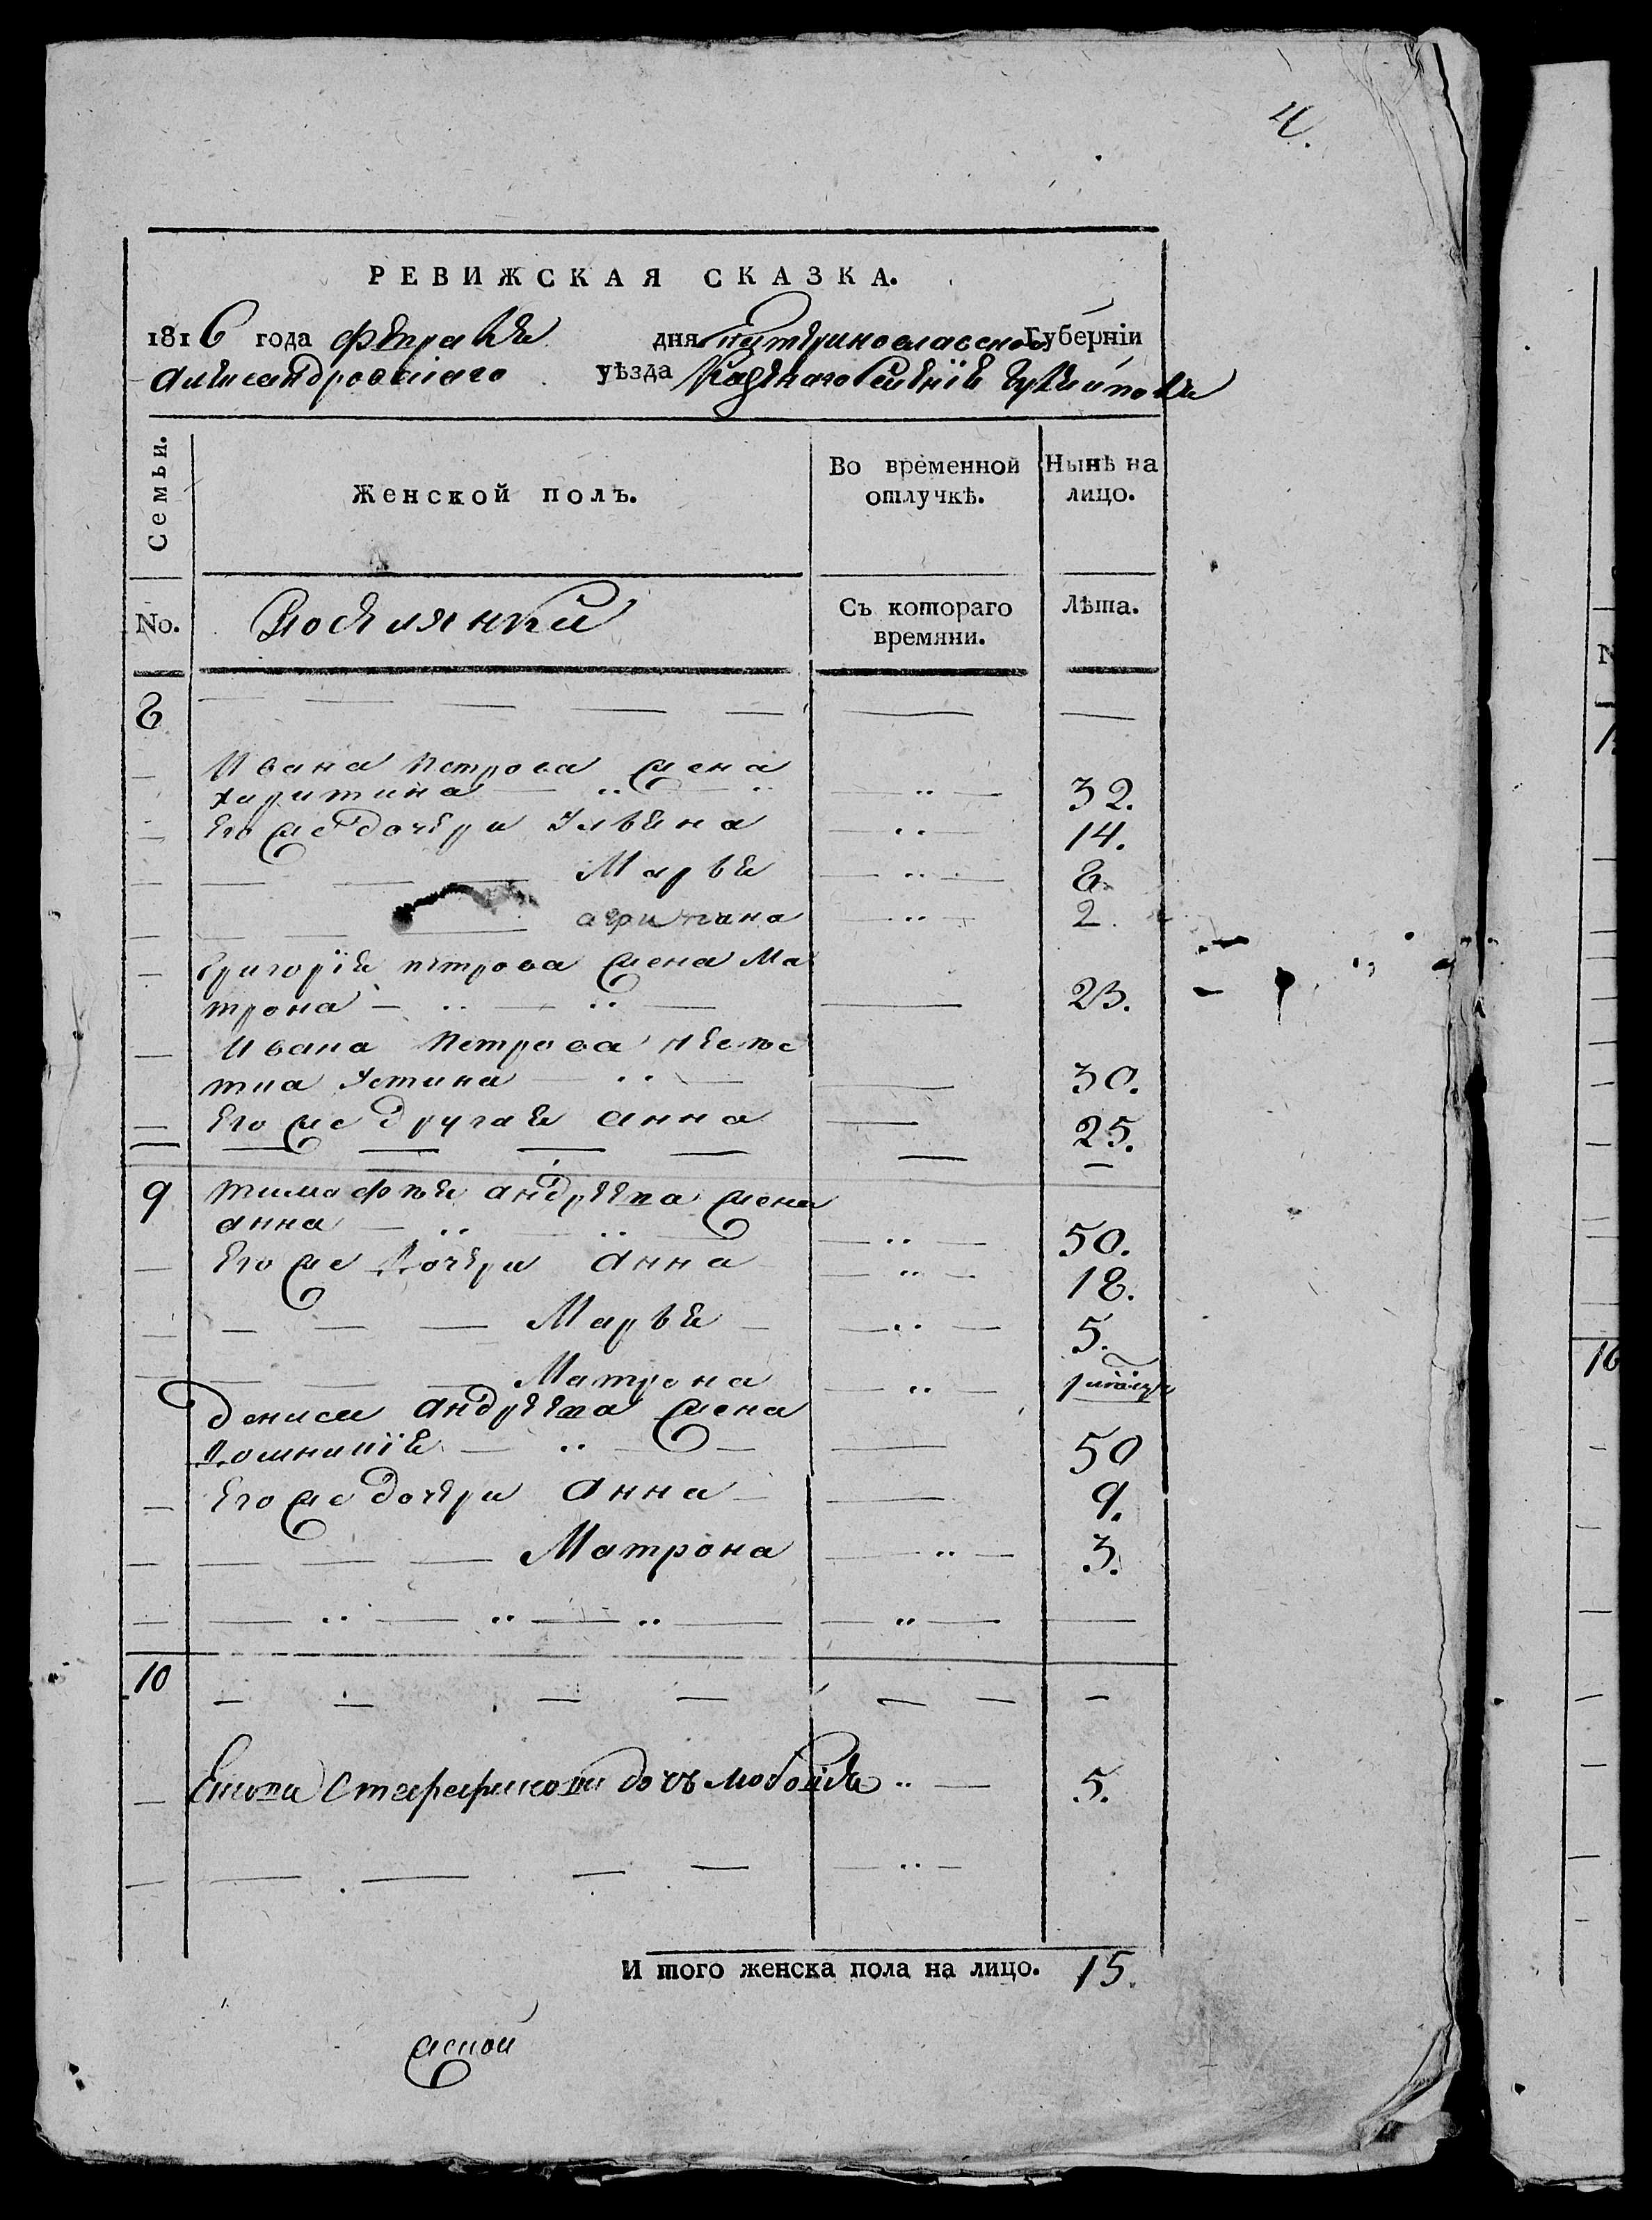 4.
РЕВИЖСКАЯ СКАЗКА.
1816 года февраля дня Екатеринославской Губерніи
Александровскаго уѣзда Казенаго Селенія
Семьи.
Женской полъ.
Во временной отлучкѣ.
Нынѣ на лицо.
No.
Поселянки
Съ котораго времяни.
Лѣта.
8
Ивана Петрова жена
Харитина 32.
Его же дочери Ульяна 14.
Марья 8.
2.
Григорія петрова жена Ма
трона 23.
Ивана Петрова невѣс
тка Устина 30.
Его же другая анна 25.
9 тимофѣя андреева жена
анна 50.
Его же дочери анна 18.
Марья 5.
Матрона 1
дениса андреева жена
Домникія 50
Его же дочери анна 9.
Матрона 3.
10
дочь 5.
И того женска пола на лицо. 15.